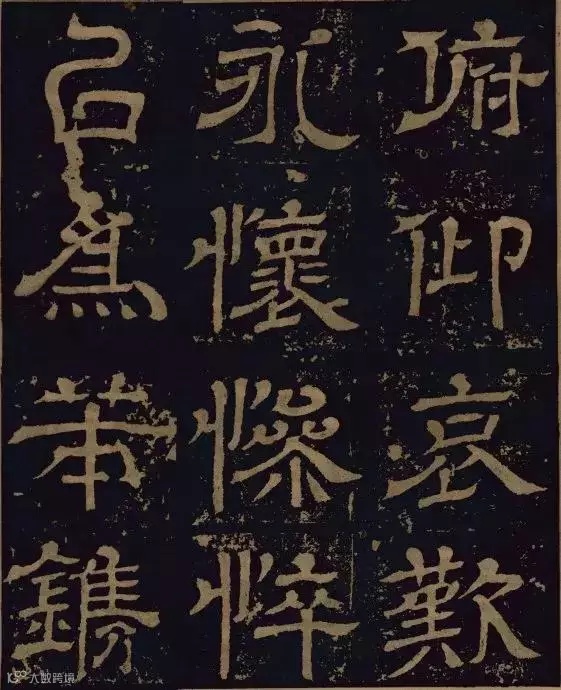 俯仰哀歎
永懷慘悴
㠯為苯鐫
大数跨境